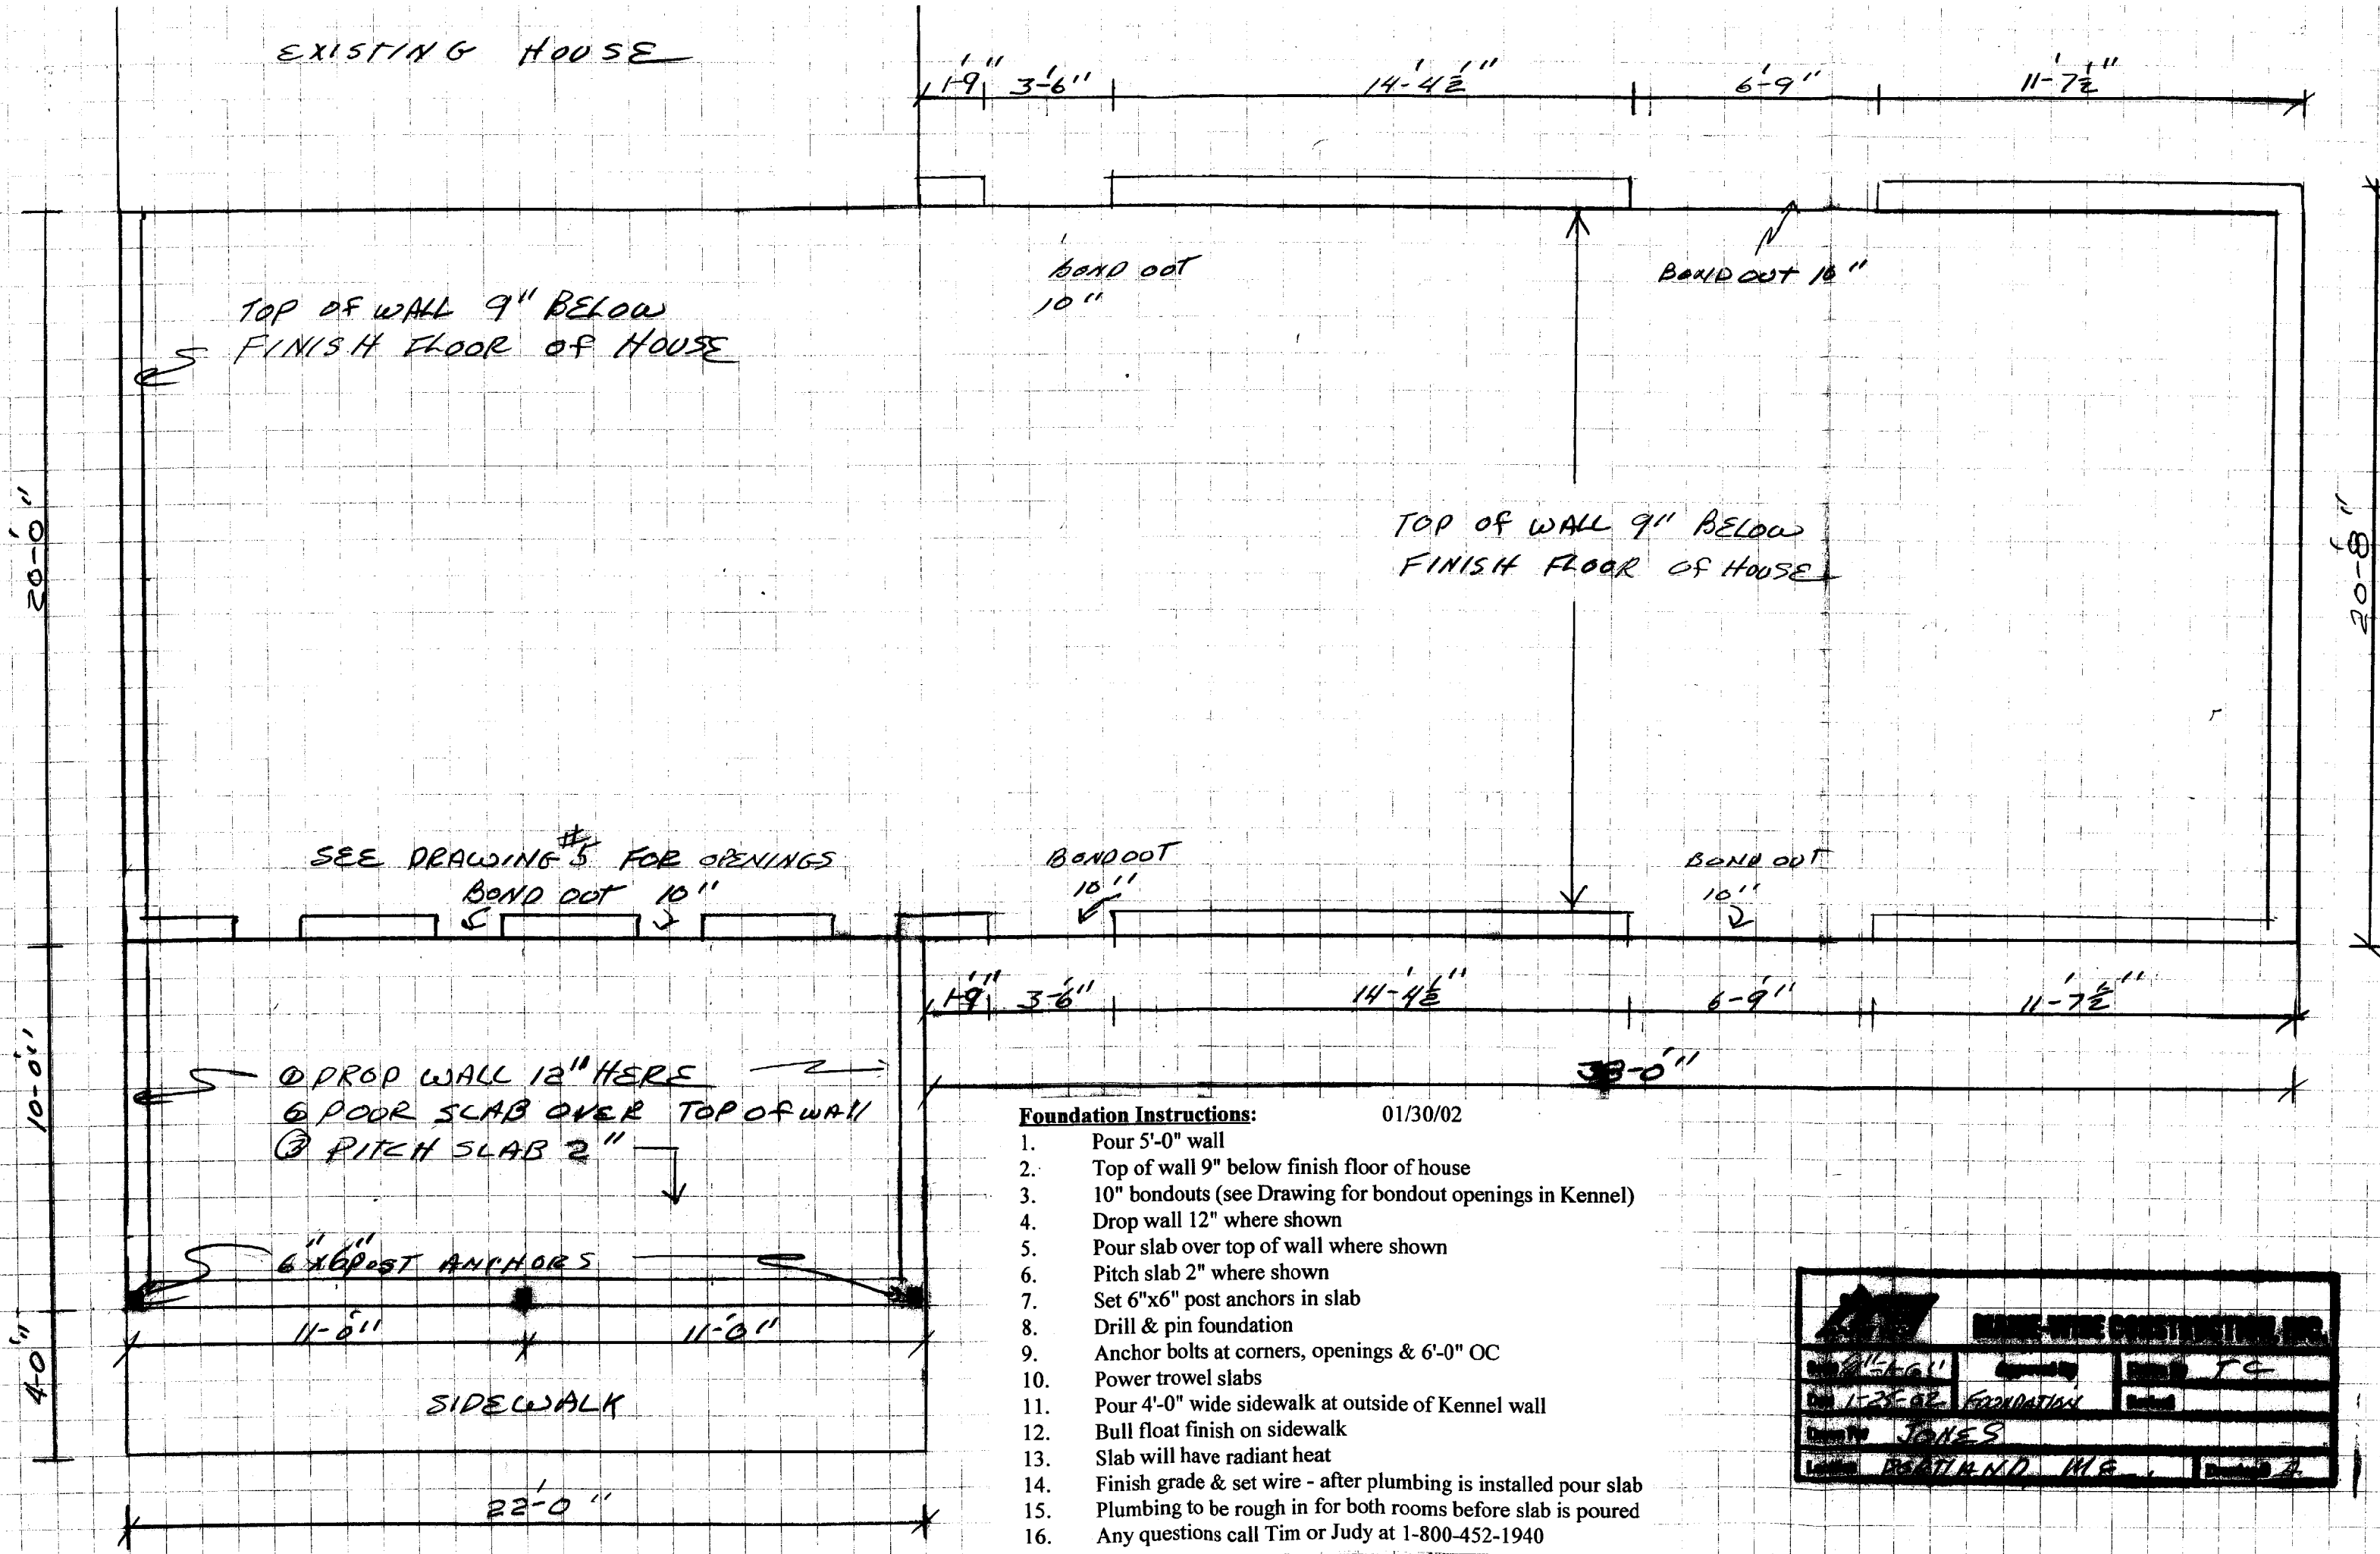 EXISTING HOUSE
1'-9" 3'-6" 14'-4½" 6'-9" 11'-7½"
BOND OOT
10"
BOND OUT 10"
TOP OF WALL 9" BELOW
FINISH FLOOR OF HOUSE
20'-0"
TOP OF WALL 9" BELOW
FINISH FLOOR OF HOUSE
20'-8"
SEE DRAWING #5 FOR OPENINGS
BOND OOT 10"
BOND OOT
10"
BOND OUT
10"
1'-9" 3'-6" 14'-4½" 6'-9" 11'-7½"
38'-0"
10'-0"
① DROP WALL 12" HERE
② POOR SLAB OVER TOP OF WALL
③ PITCH SLAB 2"
6"X6" POST ANCHORS
11'-0" 11'-0"
4'-0"
SIDEWALK
22'-0"
Foundation Instructions: 01/30/02
1. Pour 5'-0" wall
2. Top of wall 9" below finish floor of house
3. 10" bondouts (see Drawing for bondout openings in Kennel)
4. Drop wall 12" where shown
5. Pour slab over top of wall where shown
6. Pitch slab 2" where shown
7. Set 6"x6" post anchors in slab
8. Drill & pin foundation
9. Anchor bolts at corners, openings & 6'-0" OC
10. Power trowel slabs
11. Pour 4'-0" wide sidewalk at outside of Kennel wall
12. Bull float finish on sidewalk
13. Slab will have radiant heat
14. Finish grade & set wire - after plumbing is installed pour slab
15. Plumbing to be rough in for both rooms before slab is poured
16. Any questions call Tim or Judy at 1-800-452-1940
MAINE-WIDE CONSTRUCTION, INC.
Approved By
TC
Date 1-25-02 FOUNDATION Revised
JONES
Location PORTLAND ME.